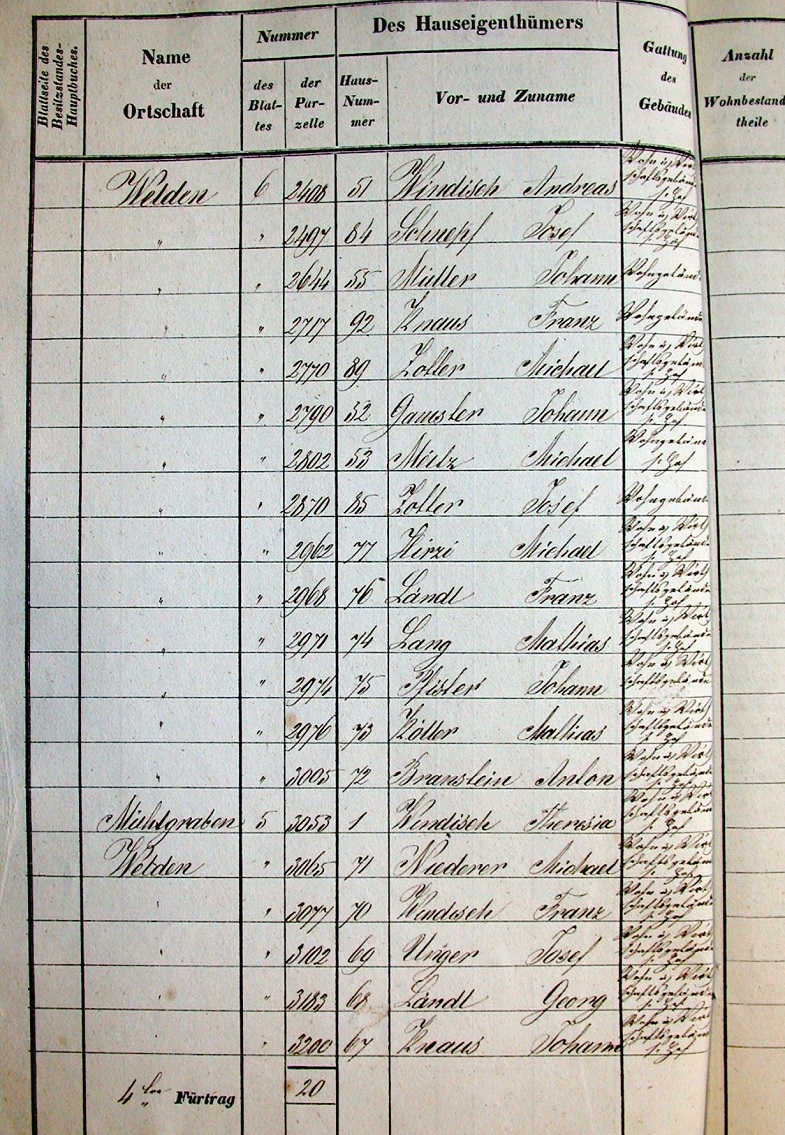 Blattseite des Besitzstandes-Hauptbuches.
Name der Ortschaft
Nummer
des Blat-tes
der Par-zelle
Des Hauseigenthümers
Haus-Num-mer
Vor- und Zuname
Gattung des Gebäudes
Anzahl der Wohnbestand theile
Welden 6 2408 51 Windisch Andreas Wohn u Wirt schaftsgebäude s. Hof
" " 2497 84 Schnepf Josef Wohn u Wirt schaftsgebäude s. Hof
" " 2644 55 Müller Johann Wohngebäude
" " 2717 92 Knaus Franz Wohngebäude
" " 2770 89 Zotter Michael Wohn u Wirt schaftsgebäude s. Hof
" " 2790 52 Gamster Johann Wohn u Wirt schaftsgebäude s. Hof
" " 2802 53 Michael Wohngebäude s. Hof
" " 2870 85 Zotter Josef Wohngebäude
" " 2962 77 Hirzi Michael Wohn u Wirt schaftsgebäude s. Hof
" " 2968 76 Ländl Franz Wohn u Wirt schaftsgebäude s. Hof
" " 2971 74 Lang Mathias Wohn u Wirt schaftsgebäude s. Hof
" " 2974 75 Pfister Johann Wohn u Wirt schaftsgebäude
" " 2976 73 Mathias Wohn u Wirt schaftsgebäude s. Hof
" " 3005 72 Branstein Anton Wohn u Wirt schaftsgebäude s. Hof
Mühlgraben 5 3053 1 Windisch Theresia Wohn u Wirt schaftsgebäude s. Hof
Welden " 3065 71 Niederer Michael Wohn u Wirt schaftsgebäude s. Hof
" " 3077 70 Windisch Franz Wohn u Wirt schaftsgebäude s. Hof
" " 3102 69 Unger Josef Wohn u Wirt schaftsgebäude s. Hof
" " 3183 68 Ländl Georg Wohn u Wirt schaftsgebäude s. Hof
" " 3200 67 Knaus Johann Wohn u Wirt schaftsgebäude s. Hof
4 Fürtrag 20